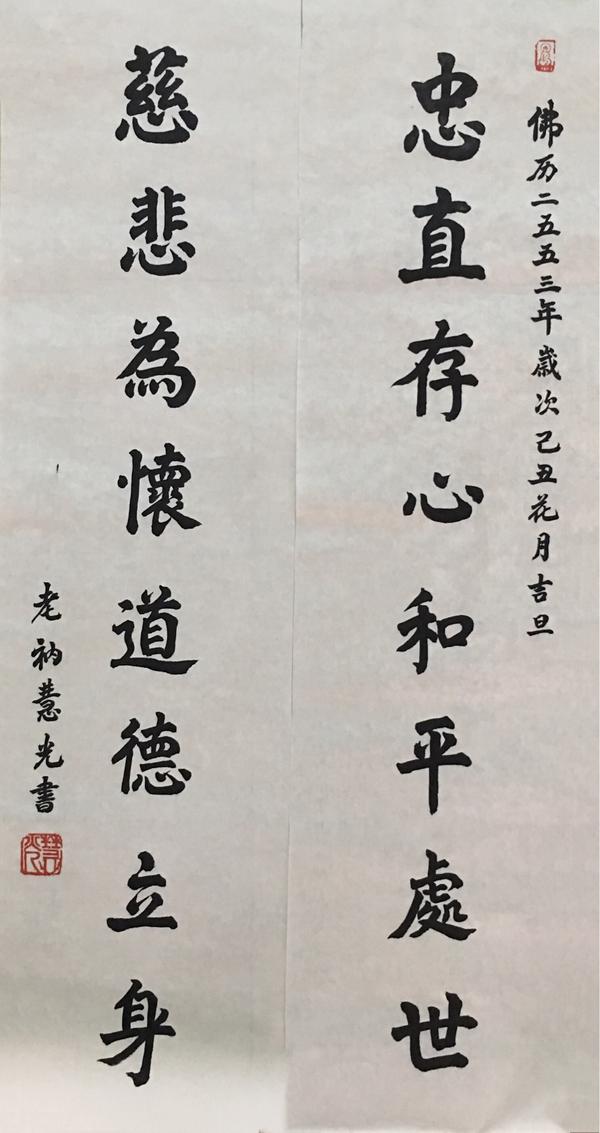 佛历二五五三年歲次己丑花月吉旦
忠直存心和平處世
慈悲為懷道德立身
老衲慧光書
慧光